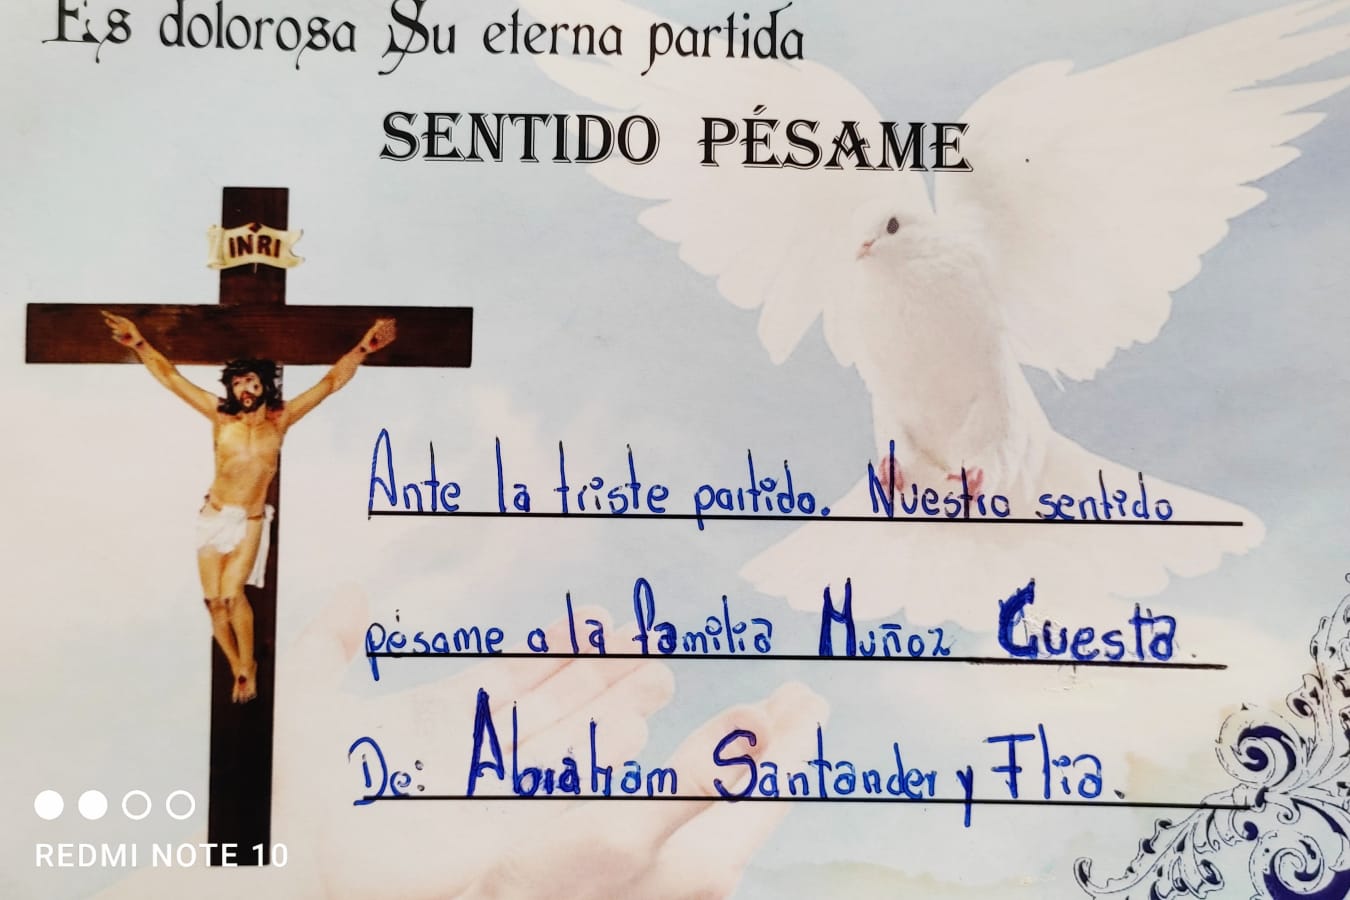 Es dolorosa Su eterna partida
SENTIDO PÉSAME
INRI
Ante la triste partida. Nuestro sentido
pésame a la familia Muñoz Cuesta.
De: Abraham Santander y Flia.
REDMI NOTE 10